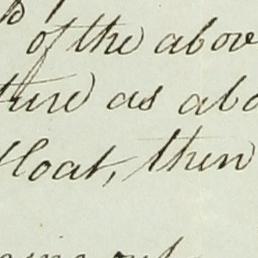 of the above
ture as abo
float, then